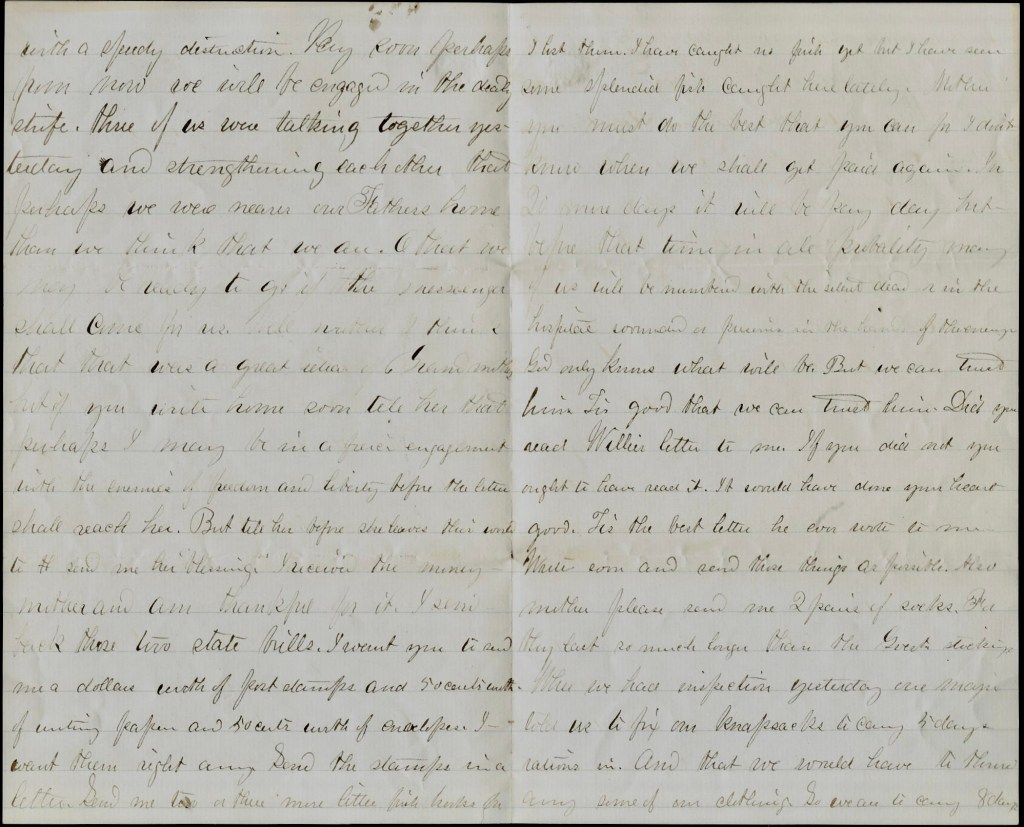 with a speedy distruction. Very soon perhaps
from now we will be engaged in the deadly
strife. three of us were talking together yes-
terday and strengthening each other that
perhaps we were nearer our Fathers home
than we think that we are. O that we
may be ready to go if the messenger
shall Come for us. Well mother I think
that that was a great idea of Grand mother
but if you write home soon tell her that
perhaps I may be in a fierce engagement
with the enemies of freedom and liberty before the letter
shall reach her. But tell her before she leaves this world
to send me her blessing. I received the money
mother and am thankful for it. I send
back those two state bills. I want you to send
me a dollars worth of post stamps and 50 cents worth
of writing paper and 50 cents worth of envelopes. I
want them right away Send the stamps in a
letter. Send me two or three more little fish hooks for
I lost them. I have caught no fish yet but I have seen
some splendid fish caught here lately. Mother
you must do the best that you can for I dont
know when we shall get paid again. In
20 more days it will be pay day but
before that time in all probality many
of us will be numbered with the silent dead or in the
hospital wounded or prisoners in the hands of the enemy.
God only knows what will be. But we can trust
him Tis good that we can trust him. Did you
read Willies letter to me. If you did not you
ought to have read it. It would have done your heart
good. Tis the best letter he ever wrote to me
Write soon and send those things as posible. Also
mother please send me 2 pairs of socks. For
they last so much longer than the Govts stockings
When we had inspection yesterday our major
told us to fix our knapsacks to carry 5 days
rations in. And that we would have to throw
away some of our clothing. So we are to carry 8 days